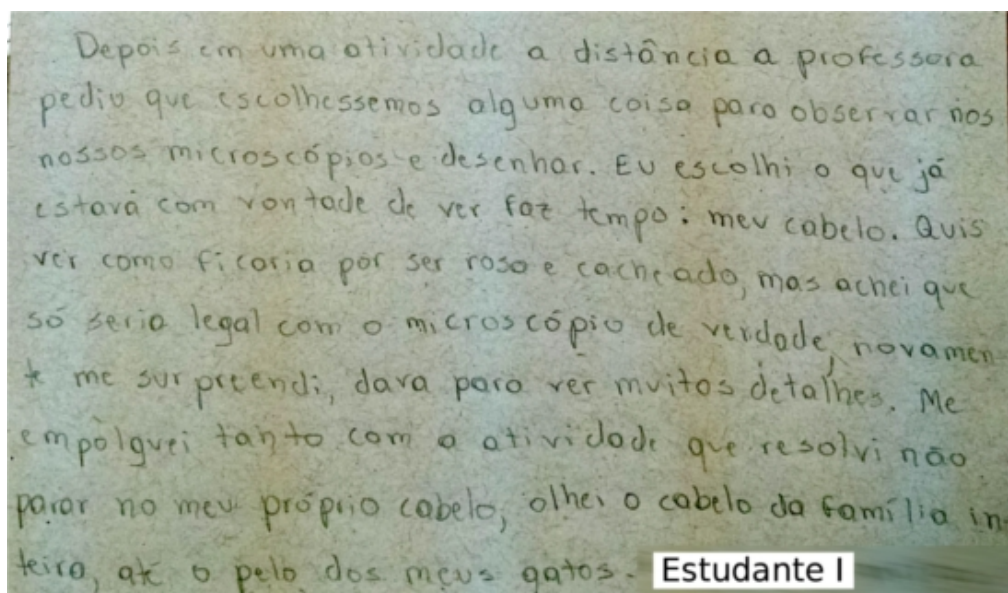 Depois em uma atividade a distância a professora
pediu que escolhessemos alguma coisa para observar nos
nossos microscópios e desenhar. Eu escolhi o que já
estava com vontade de ver faz tempo: meu cabelo. Quis
ver como ficaria por ser roso e cacheado, mas achei que
só seria legal com o microscópio de verdade, novamen
te me surpreendi, dava para ver muitos detalhes. Me
empolguei tanto com a atividade que resolvi não
parar no meu próprio cabelo, olhei o cabelo da família in
teira, até o pelo dos meus gatos.
Estudante I